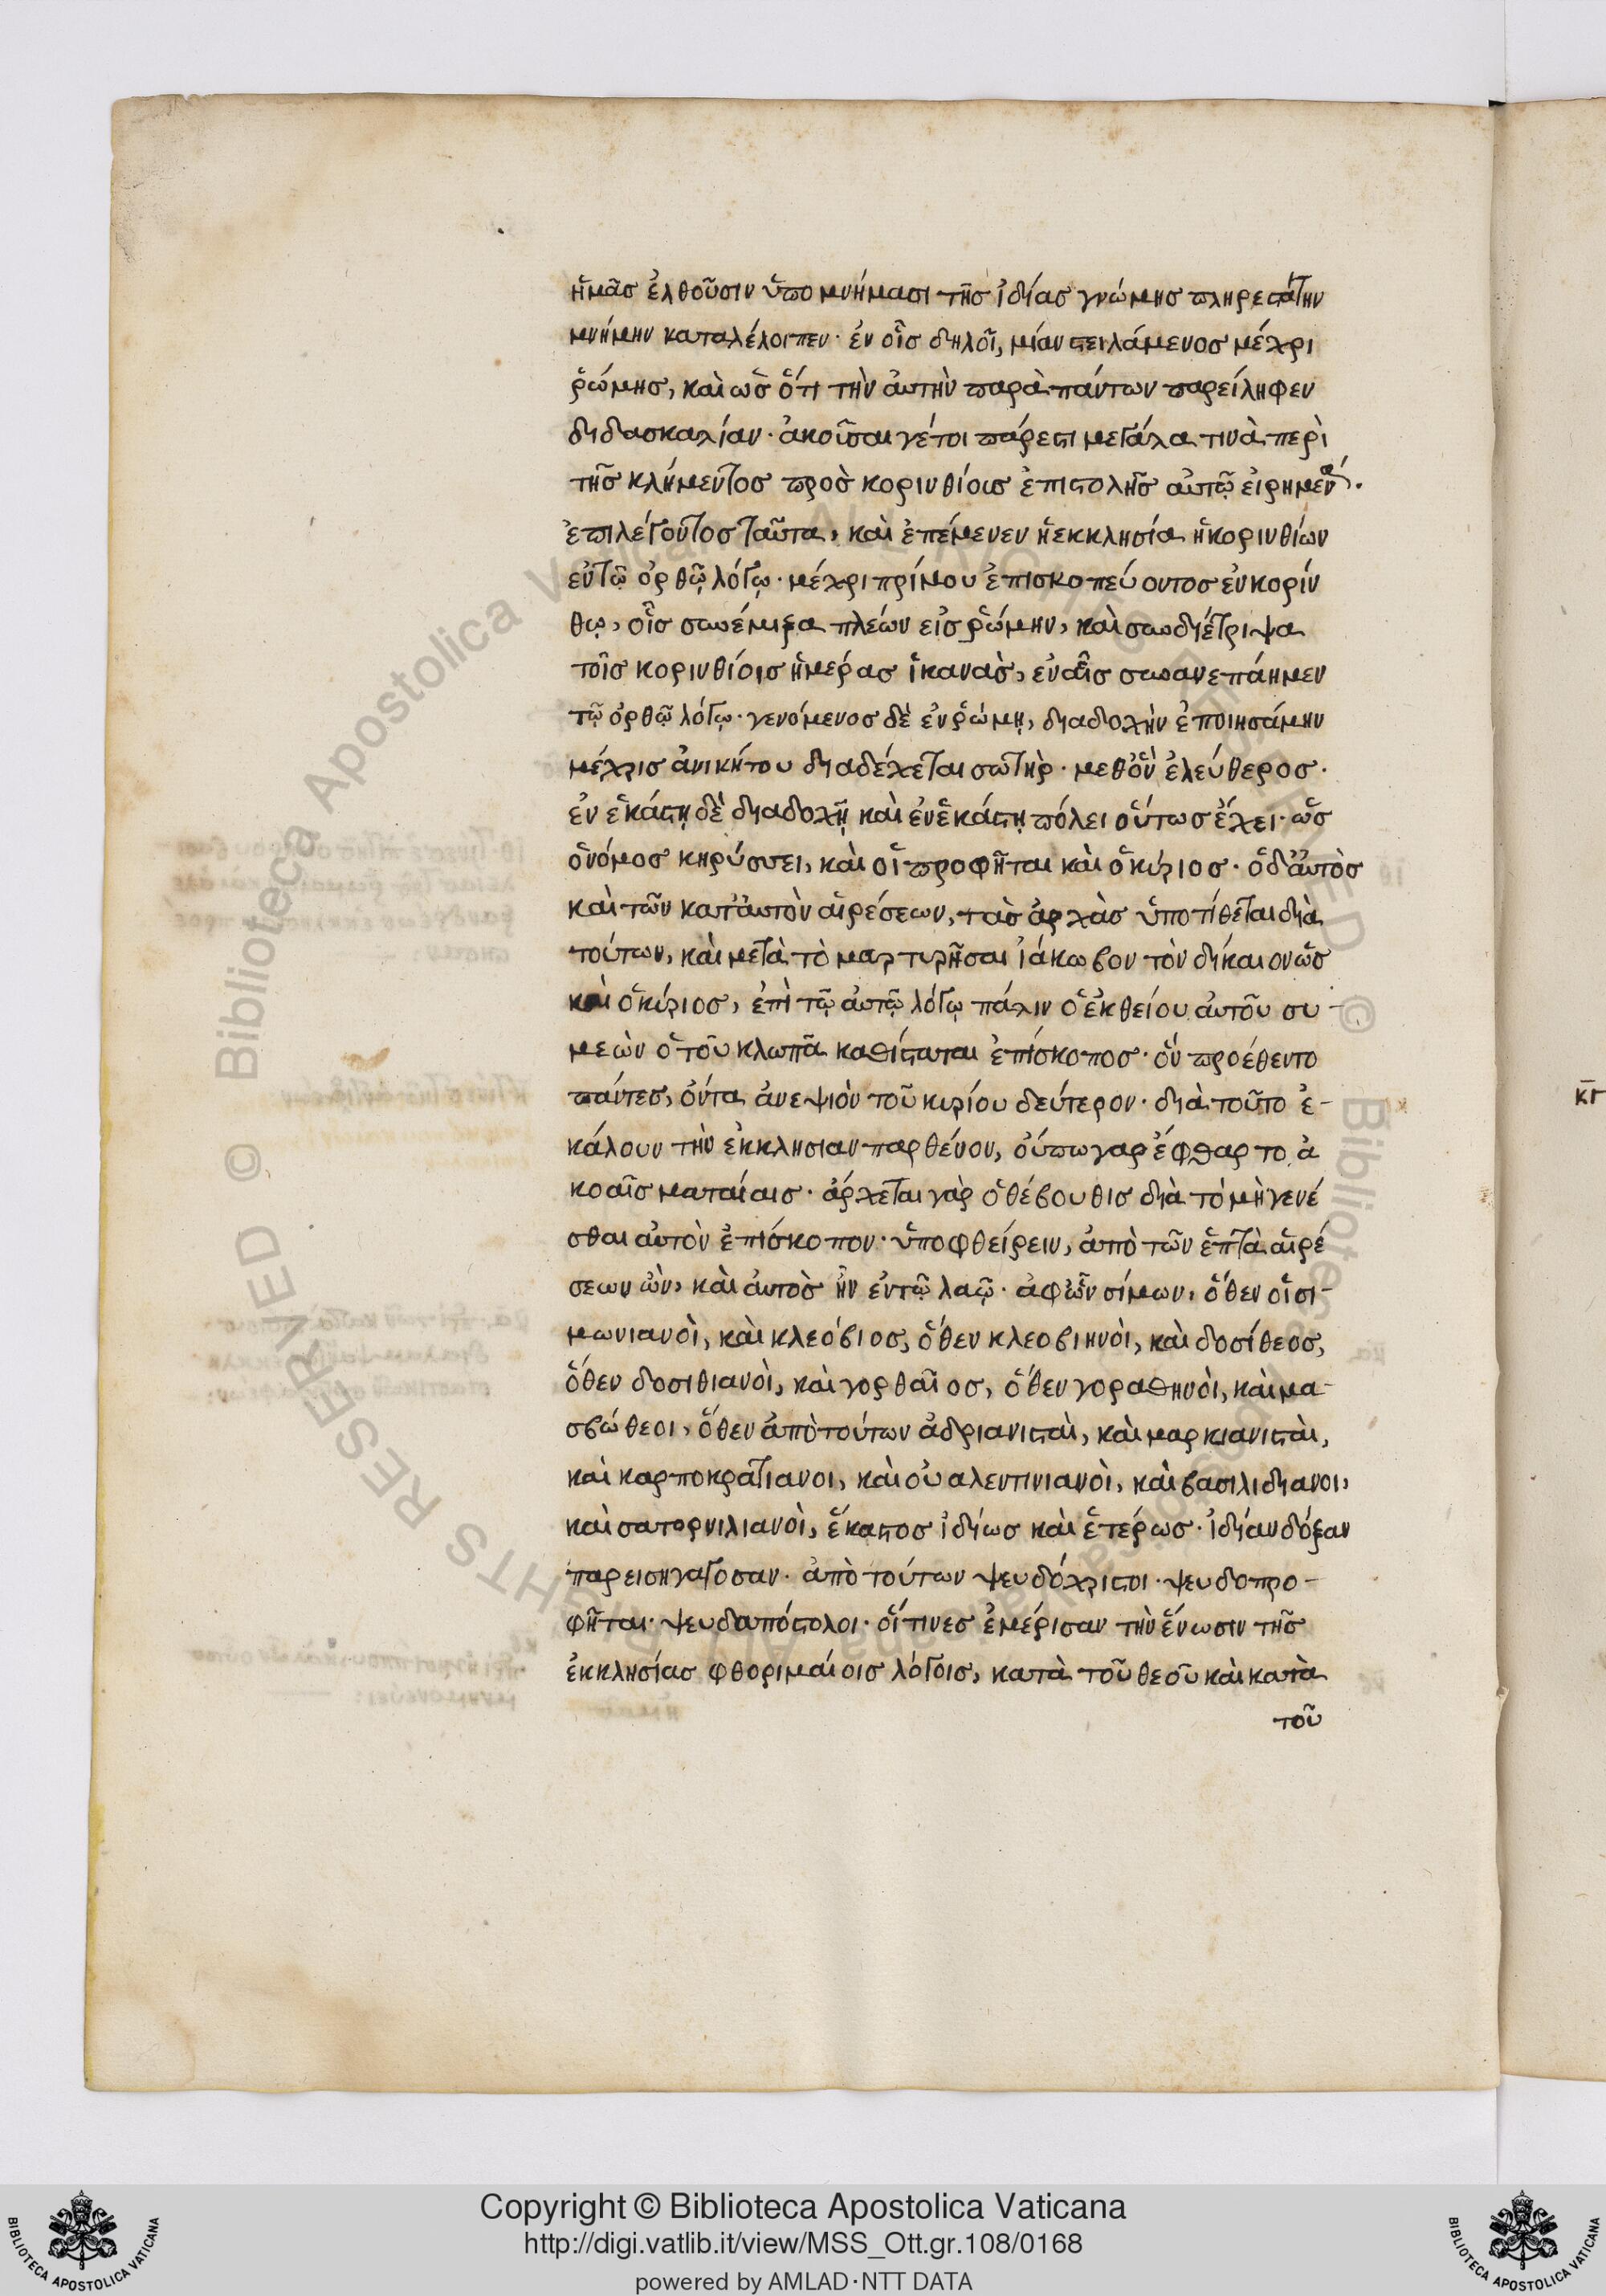 ἡμᾶσ ἐλθοῦσιν ὑπομνήμασι τῆσ ἰδίασ γνώμησ πληρεστάτην
μνήμην καταλέλοιπεν· ἐν οἷσ δηλοῖ, μίαν στειλάμενοσ μέχρι
ῥώμησ, καὶ ὡσ ὅτι τὴν ἀυτὴν παρὰ πάντων παρείληφεν
διδασκαλίαν· ἀκοῦσαι γέτοι πάρεστι μετάλα τινὰ περὶ
τῆσ κλήμεντοσ πρὸσ κορινθίουσ ἐπιστολῆσ αὐτῷ εἰρημένα.
ἐπιλέγοντοσ ταῦτα, καὶ ἐπέμενεν ἡ εκκλησία ἡ κορινθίων
εν τῷ ὀρθῷ λόγῳ· μέχρι πρίμου ἐπισκοπεύοντοσ ἐν κορίν
θῳ, οἷσ συνέμιξα πλέων εἰσ ῥώμην, καὶ συνδιέτριψα
τοῖσ κορινθίοισ ἡμέρασ ἱκανὰσ, εν αἷσ συνανεπάημεν
τῷ ὀρθῷ λόγῳ· γενόμενοσ δὲ ἐν ῥώμῃ, διαδοχὴν ἐποιησάμην
μέχρισ ἀνικήτου διαδέχεται σωτὴρ· μεθ ὃν ἐλεύθεροσ·
ἐν ἑκάστῃ δὲ διαδοχῇ καὶ ἐν ἑκάστῃ πόλει οὕτωσ ἔχει· ὡσ
ὁ νόμοσ κηρύσσει, καὶ οἱ προφῆται καὶ ὁ κύριοσ· ὁ δ' ἀυτὸσ
καὶ τῶν κατ' ἀυτὸν αἱρέσεων, τὰσ ἀρχὰσ ὑποτίθεται διὰ
τούτων, καὶ μετὰ τὸ μαρτυρῆσαι ἰάκωβον τὸν δίκαιον ὡσ
καὶ ὁ κύριοσ, ἐπὶ τῷ ἀυτῷ λόγῳ πάλιν ὁ ἐκ θείου ἀυτοῦ συ-
μεὼν ὁ τοῦ κλωπᾶ καθίσταται ἐπίσκοποσ· ὅν προέθεντο
πάντεσ, ὄντα ἀνεψιὸν τοῦ κυρίου δεύτερον· διὰ τοῦτο ἐ-
κάλουν τὴν ἐκκλησιαν παρθένον, οὔπω γαρ ἔφθαρτο ἀ
κοαῖσ ματαίαισ· ἄρχεται γὰρ ὁ θέβουθισ διὰ τό μὴ γενέ
σθαι αὐτὸν ἐπίσκοπον· ὑποφθείρειν, ἀπὸ τῶν ἑπτὰ αἱρέ
σεων ὢν, καὶ ἀυτὸσ ἦν ἐν τῷ λαῷ· ἀφ ὧν σίμων, ὅθεν οἱ σι-
μωνιανοὶ, καὶ κλεόβιοσ, ὅθεν κλεοβιηνὸι, καὶ δοσίθεοσ,
ὅθεν δοσιθιανὸι, καὶ γορθαῖοσ, ὅθεν γοραθηνὸι, καὶ μα-
σβώθεοι, ὅθεν ἀπὸ τούτων ἀδριανισταὶ, καὶ μαρκιανισταὶ,
καὶ καρποκρατιανοι, καὶ οὐαλεντινιανοὶ, καὶ βασιλιδιανοι,
καὶ σατορνιλιανοὶ, ἕκαστοσ ἰδίωσ καὶ ἑτέρωσ· ἰδίαν δόξαν
παρεισηγαγοσαν· ἀπὸ τούτων ψευδόχριστοι· ψευδοπρο-
φῆται· ψευδαπόστολοι· οἵτινεσ ἐμέρισαν τὴν ἕνωσιν τῆσ
ἐκκλησίασ φθοριμαίοισ λόγοισ, κατὰ τοῦ θεοῦ καὶ κατὰ
τοῦ
κγ
Copyright © Biblioteca Apostolica Vaticana
http://digi.vatlib.it/view/MSS_Ott.gr.108/0168
powered by AMLAD·NTT DATA